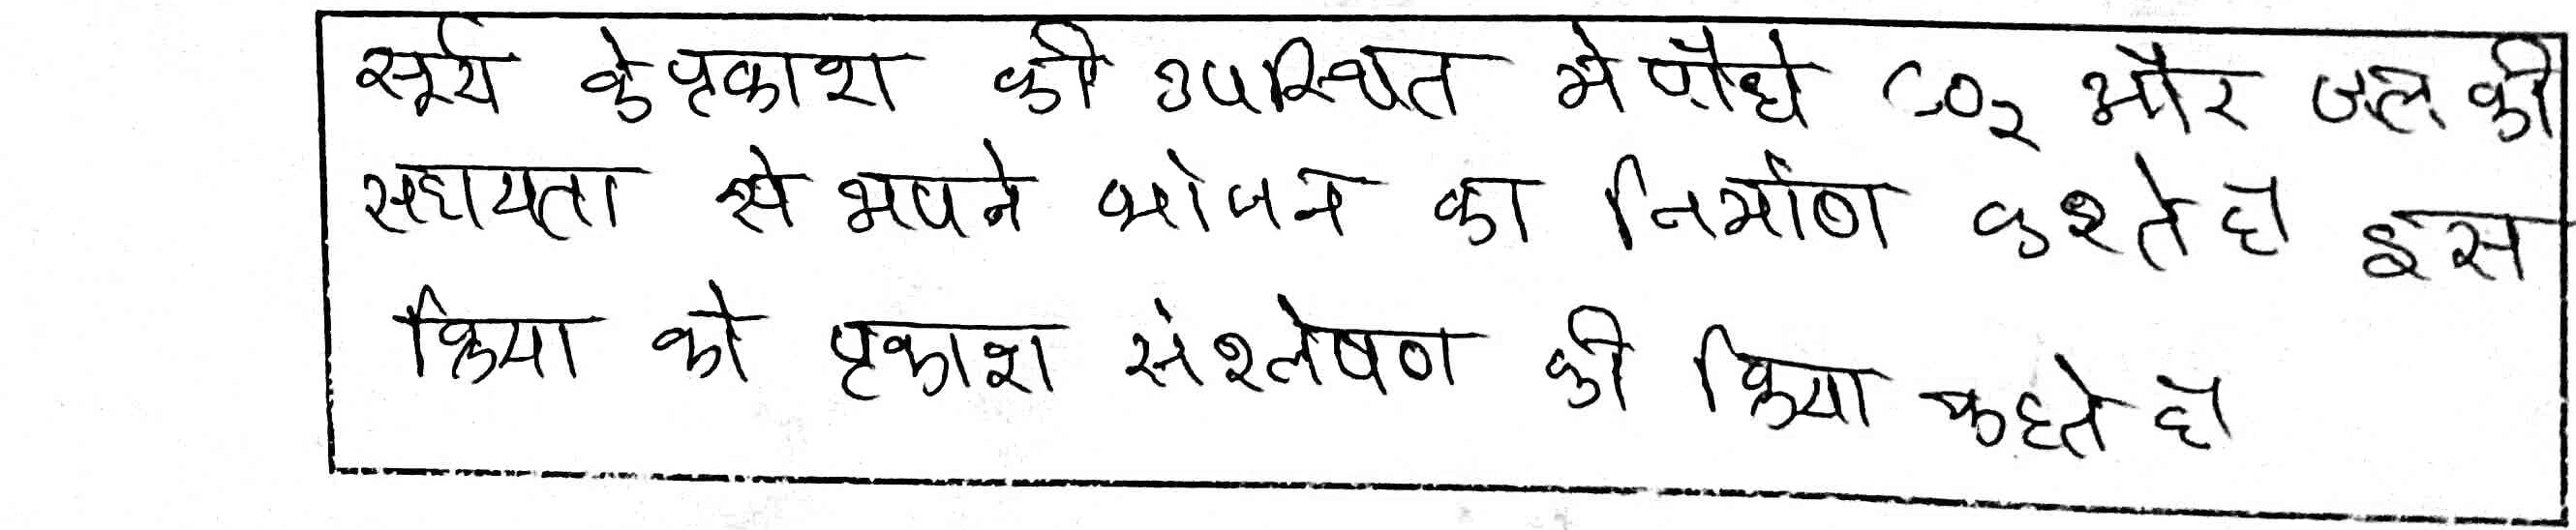 सूर्य के प्रकाश की उपस्थित मे पौधे CO₂ और जल की
सहायता से अपने भोजन का निर्माण करते है इस
क्रिया को प्रकाश संश्लेषण की क्रिया कहते है